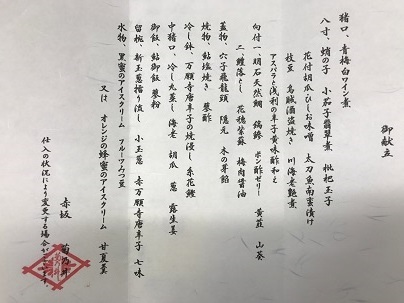 御献立
猪口、青梅白ワイン煮
八寸、蛸の子 小茄子翡翠煮 枇杷玉子
花付胡瓜ひしお味噌 太刀魚南蛮漬け
枝豆 烏賊酒盗焼き 川海老艶煮
アスパラと浅利の辛子黄味酢和え
向付一、明石天然鯛 縞鯵 ポン酢ゼリー 黄韮 山葵
二、鱧落とし 花穂紫蘇 梅肉醤油
蓋物、穴子飛龍頭 隠元 木の芽餡
焼物、鮎塩焼き 蓼酢
冷し鉢、万願寺唐辛子の焼浸し 糸花鰹
中猪口、冷し丸蒸し 海老 胡瓜 葱 露生姜
御飯、鮎御飯 蓼粉
留椀、新玉葱擂り流し 小玉葱 赤万願寺唐辛子 七味
水物、黒蜜のアイスクリーム フルーツみつ豆
又は オレンジの蜂蜜のアイスクリーム 甘夏羹
赤坂 菊乃井
仕入の状況により変更する場合がございます。